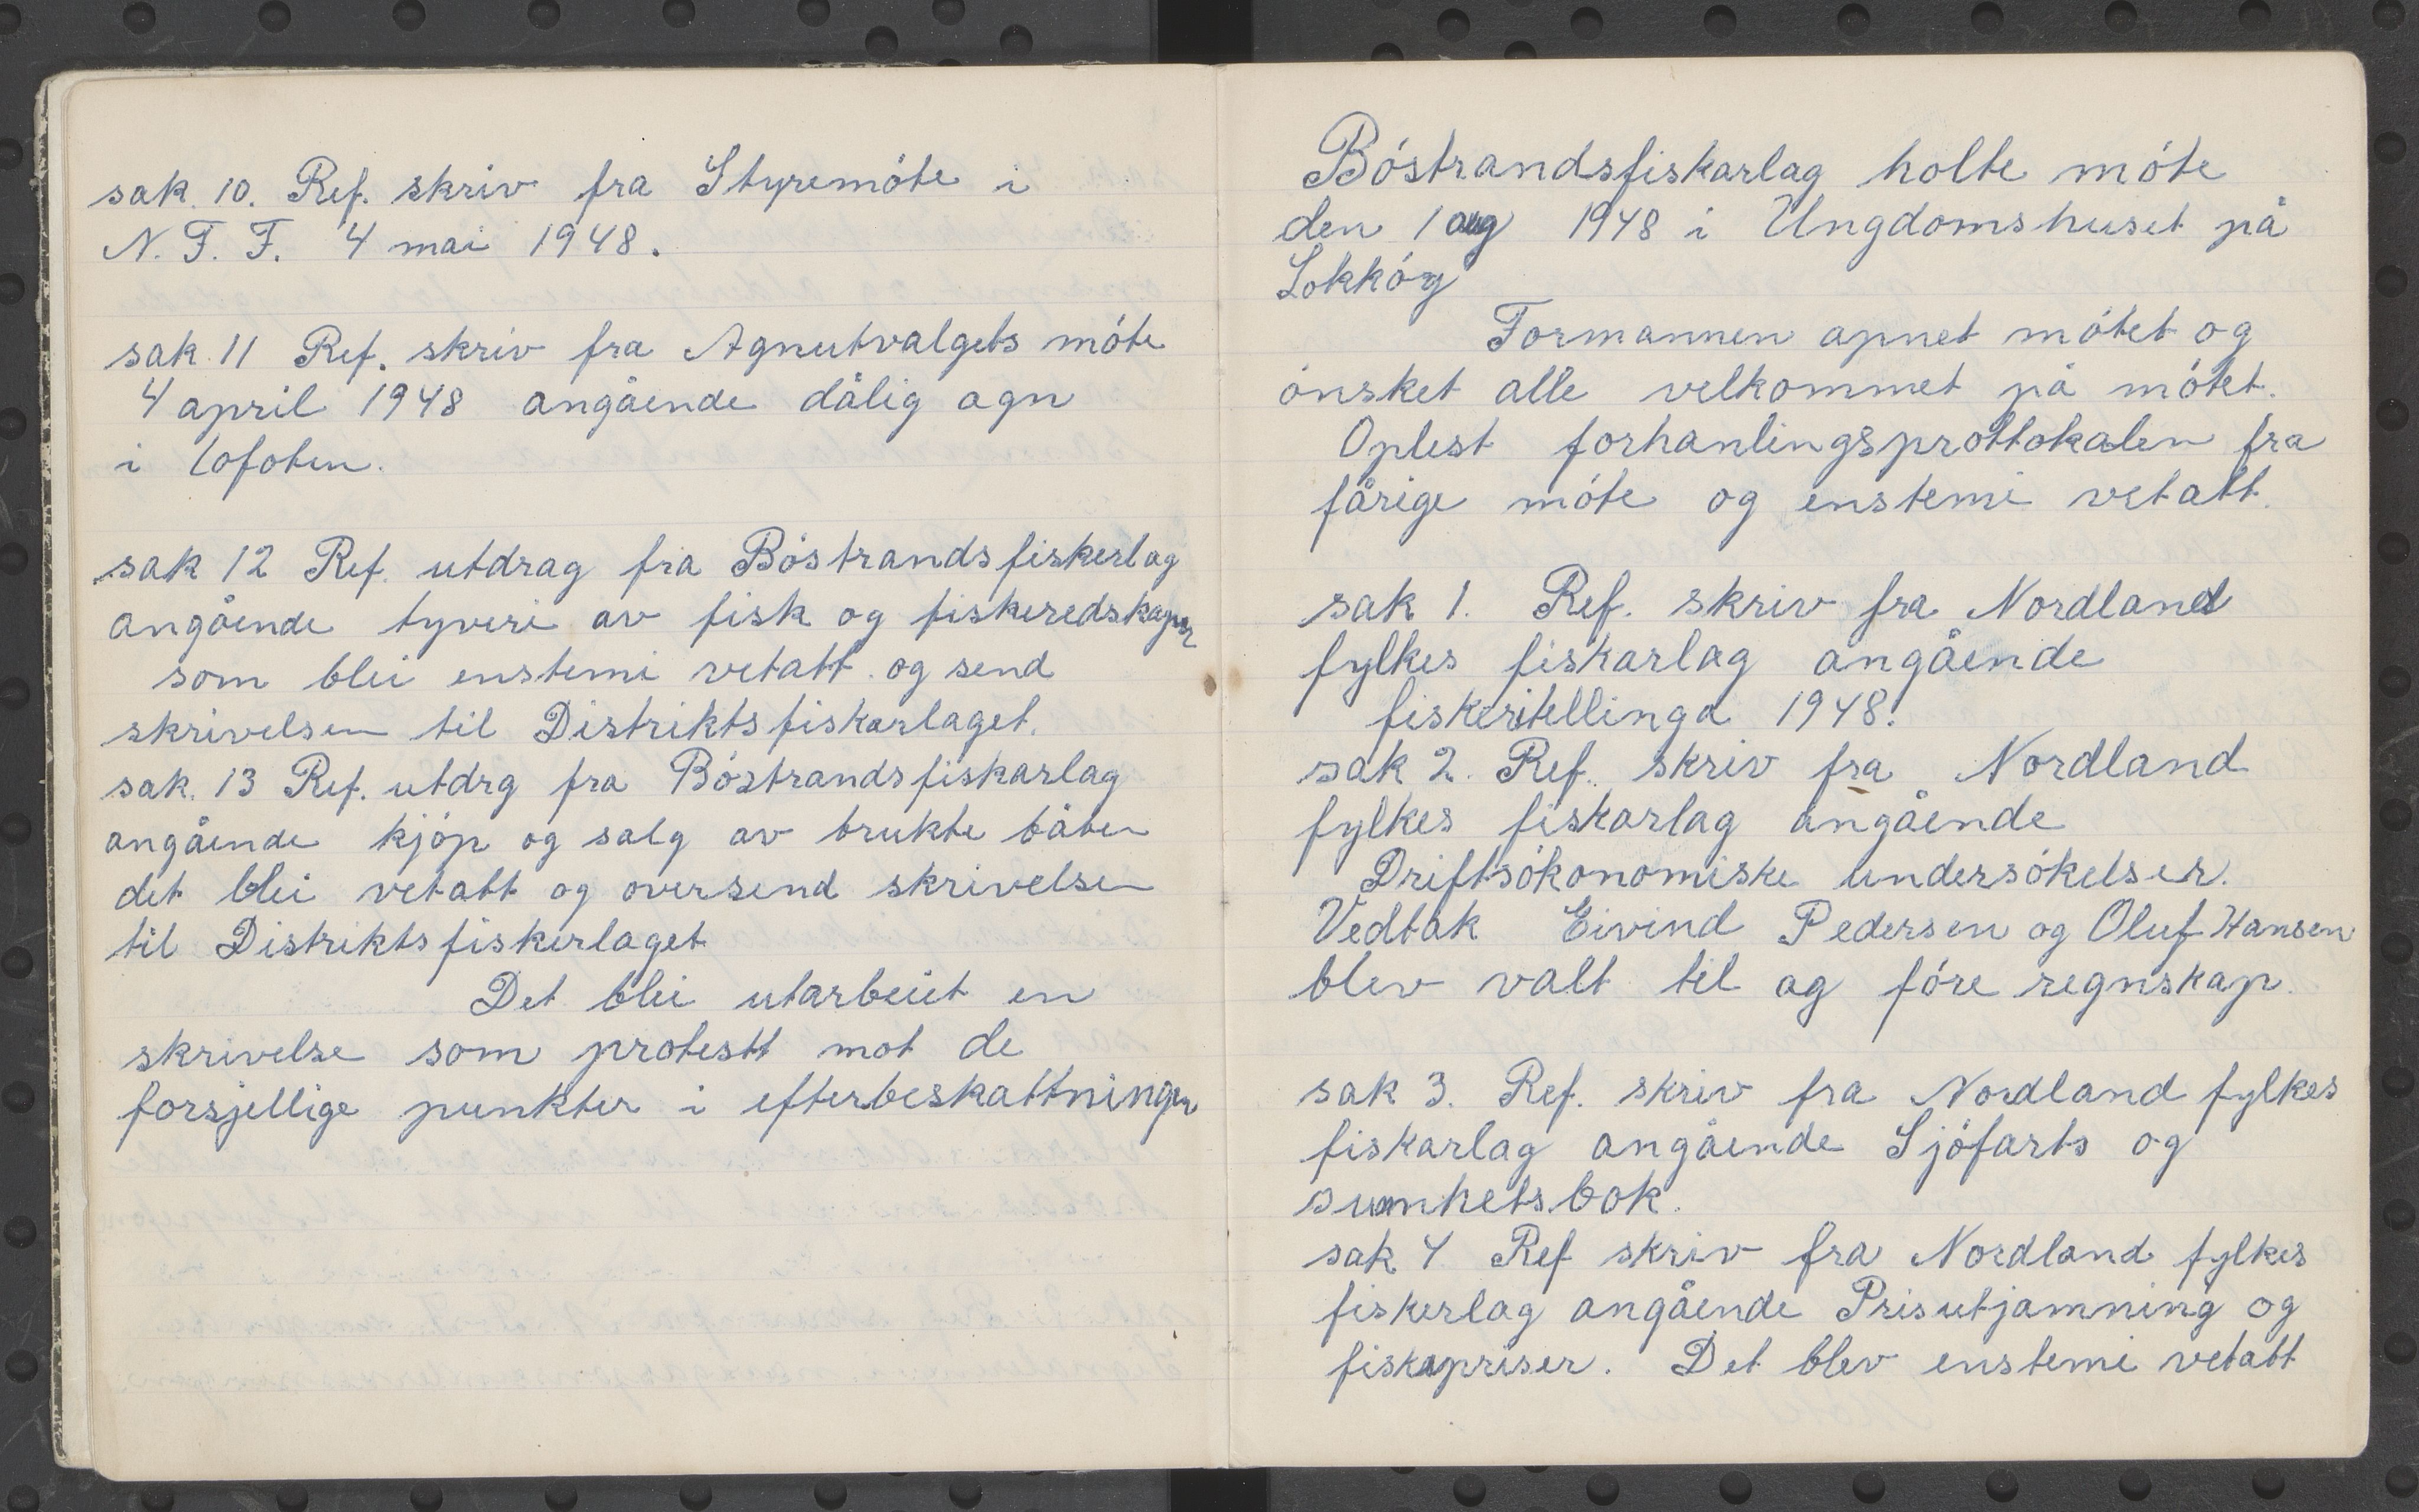 sak. 10. Ref. skriv fra Styremóte i
N. F. F. 4 mai 1948.
sak. 11 Ref. skriv fra Agnutvalgets móte
4 april 1948 angående dålig agn
i Lofoten.
sak 12 Ref. utdrag fra Bóstrandsfiskerlag
angående tyveri av fisk og fiskeredskaper
som blei enstemi vetatt og send
skrivelsen til Distriktsfiskarlaget.
sak. 13 Ref. utdrg fra Bóstrandsfiskarlag
angående kjóp og salg av brukte båter
det blei vetatt og oversend skrivelsen
til Distriktsfiskerlaget
Det blei utarbeiet en
skrivelse som protestt mot de
forsjellige punkter i efterbeskattningen
Bóstrandsfiskarlag holte móte
den 1 aug 1948 i Ungdomshuset på
Lokkóy
Formannen apnet mótet og
ónsket alle velkommet på mótet.
Oplest forhanlingsprottokalen fra
fårige móte og enstemi vetatt.
sak 1. Ref. skriv fra Nordland
fylkes fiskarlag angående
fiskeritellinga 1948.
sak 2. Ref. skriv fra Nordland
fylkes fiskarlag angående
Driftsókonomiske undersókelser.
Vedtak Eivind Pedersen og Oluf Hansen
blev valt til og fóre regnskap.
sak 3. Ref. skriv fra Nordland fylkes
fiskarlag angående Sjófarts og
sunnhetsbok.
sak 4 Ref skriv fra Nordland fylkes
fiskerlag angående Prisutjamning og
fiskepriser. Det blev enstemi vetatt